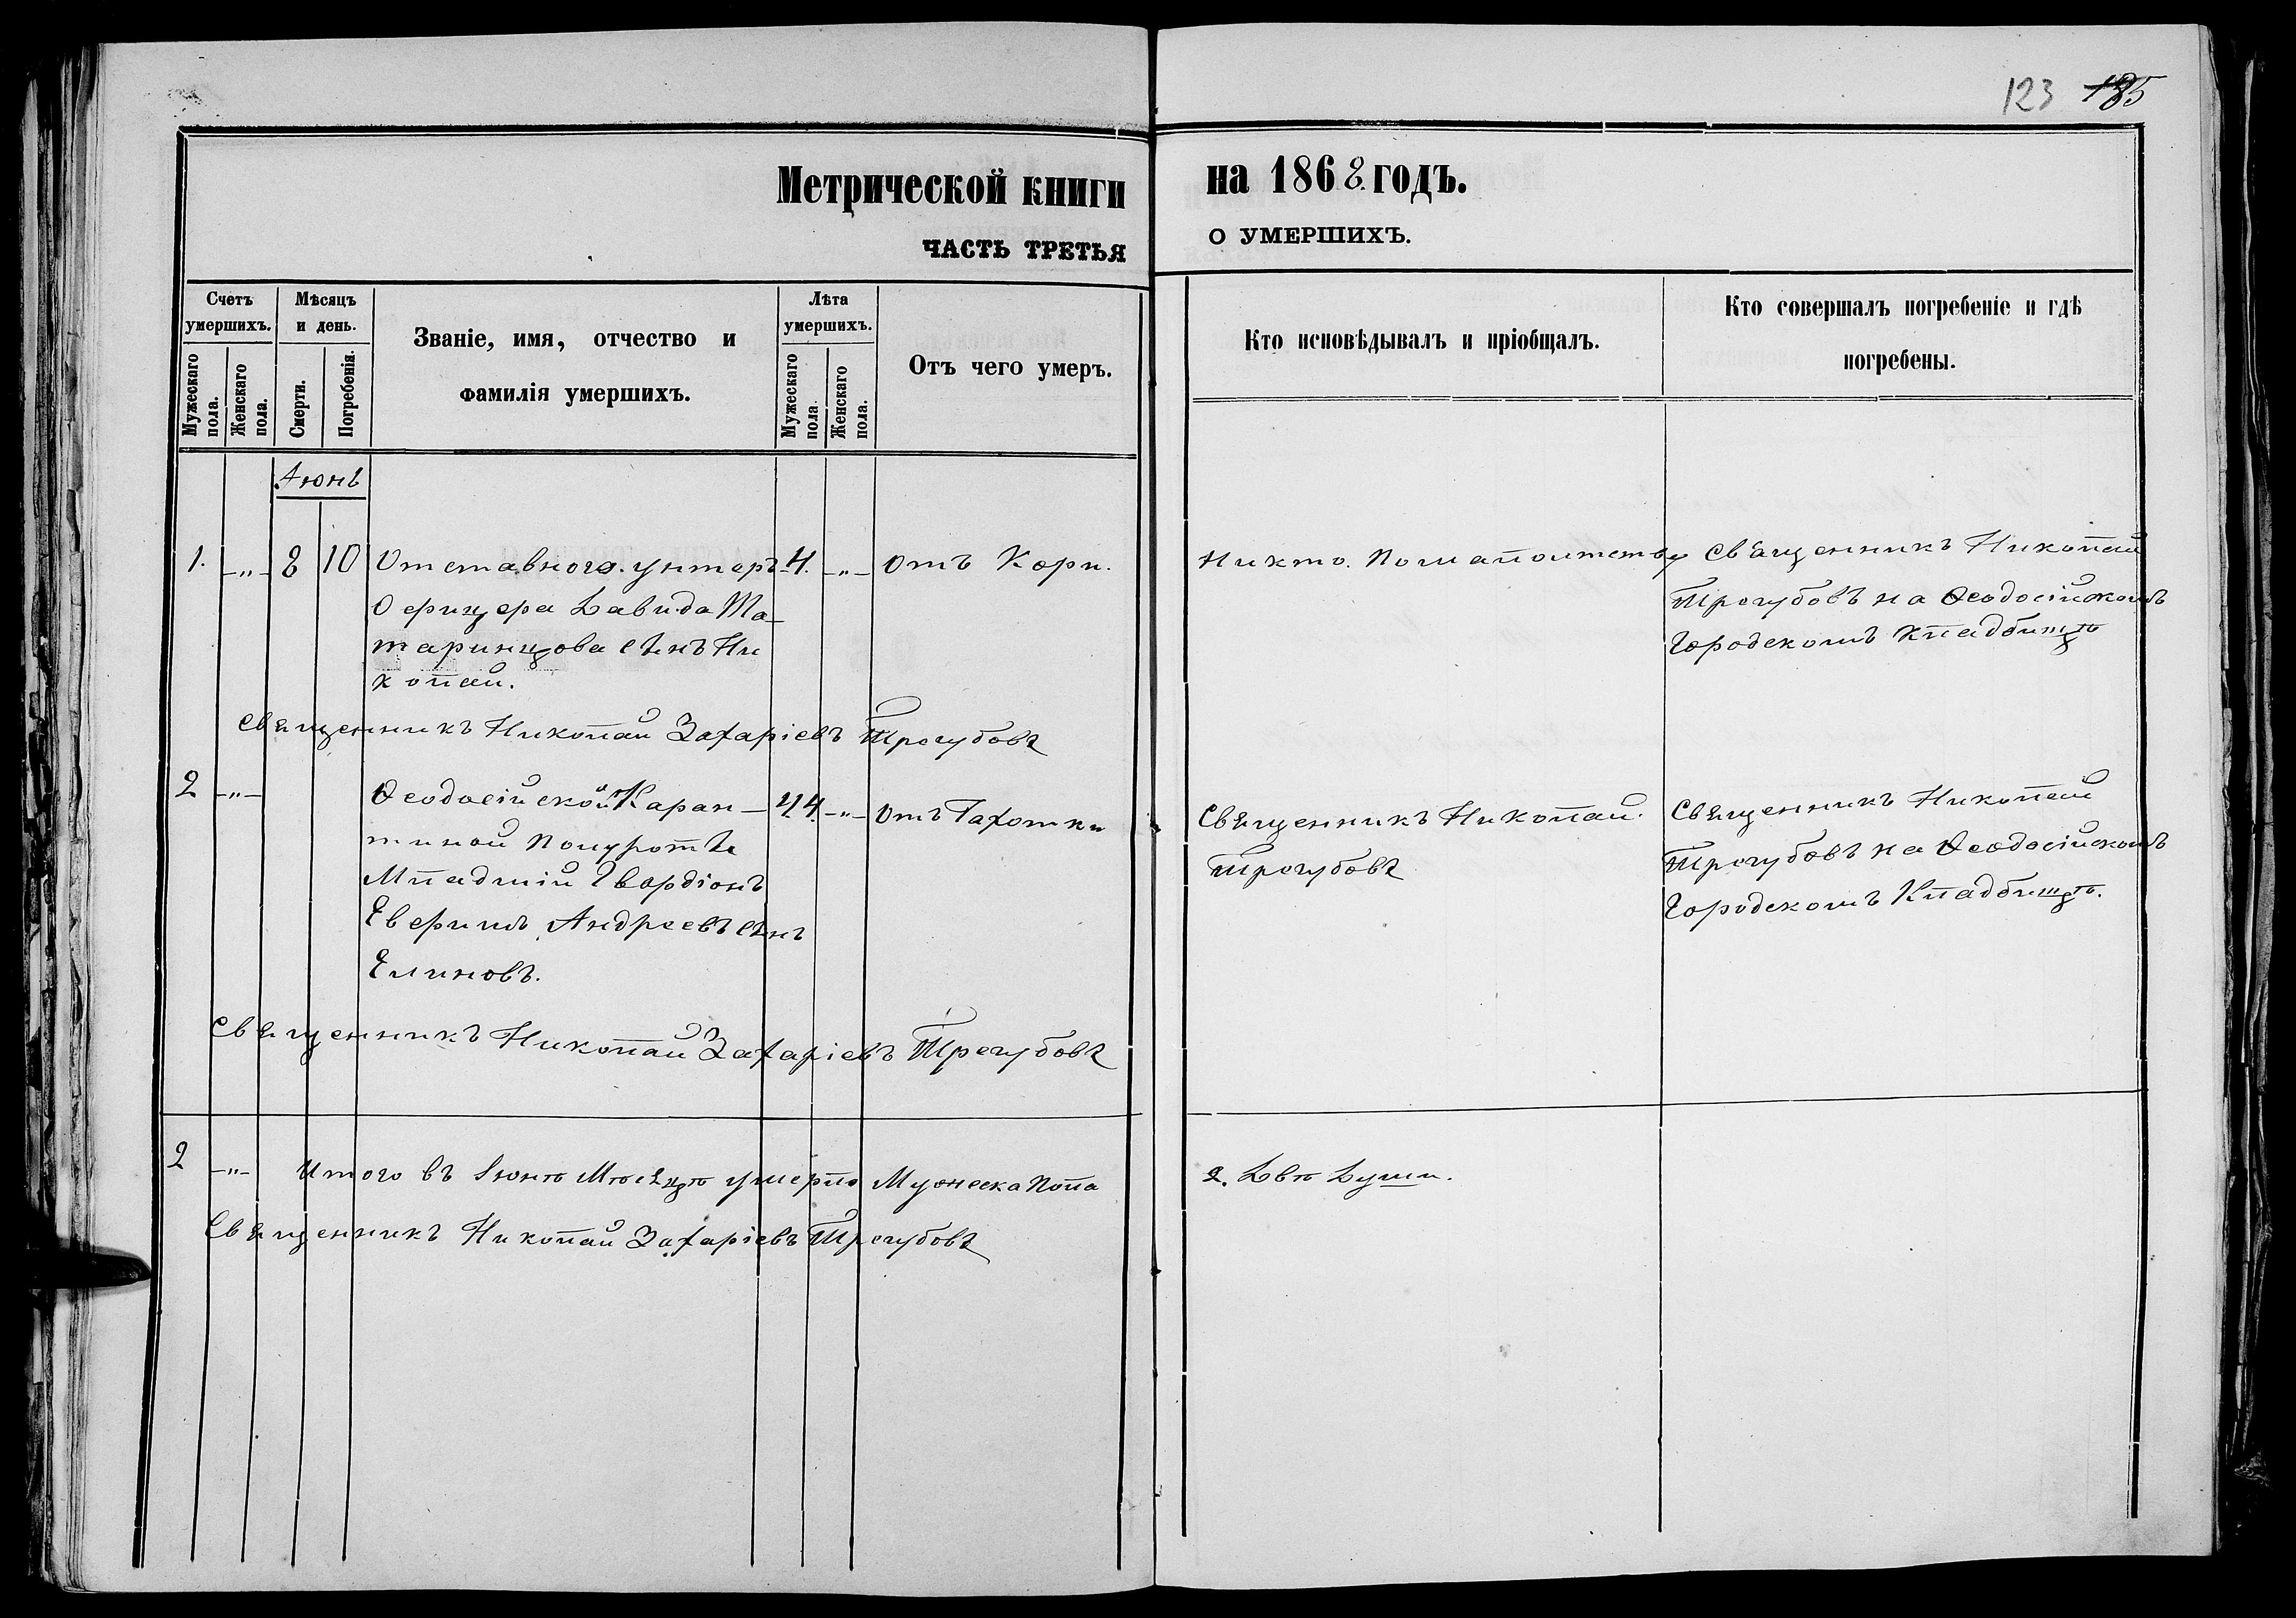 123 185
Метрической книги на 1868. годъ.
ЧАСТЬ ТРЕТЬЯ О УМЕРШИХЪ.
Счетъ умершихъ.
Мужескаго пола.
Женскаго пола.
Мѣсяцъ и день.
Смерти.
Погребенія.
Званіе, имя, отчество и
фамилія умершихъ.
Лѣта умершихъ.
Мужескаго пола.
Женскаго пола.
Отъ чего умеръ.
Кто исповѣдывалъ и пріобщалъ.
Кто совершалъ погребеніе и гдѣ
погребены.
Іюнь
1. -„- 8 10 Отставного унтеръ 4. -„- Отъ Кори.
Офицера Давида Та-
таринцова сынъ Ни
колай.
Никто. По малолетству
Священникъ Николай
Трегубовъ на Ѳеодосійскомъ
Городскомъ Кладбищѣ
Священникъ Николай Захаріевъ Трегубовъ
2 -„- Ѳеодосійской Каран- 44. -„- Отъ Чахотки
тиной Полуроты
Младшій Гвардіонъ
Андреевъ сынъ
Священникъ Николай
Трегубовъ
Священникъ Николай
Трегубовъ на Ѳеодосійскомъ
Городскомъ Кладбищѣ.
Священникъ Николай Захаріевъ Трегубовъ
2 -„- Итого въ Іюнѣ Мѣсяцѣ умерло Мужеска Пола 2. Двѣ Души.
Священникъ Николай Захаріевъ Трегубовъ